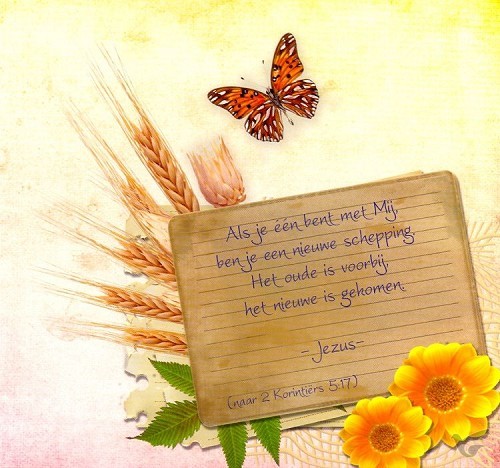 Als je één bent met Mij,
ben je een nieuwe schepping.
Het oude is voorbij,
het nieuwe is gekomen.
- Jezus-
(naar 2 Korintiërs 5:17)